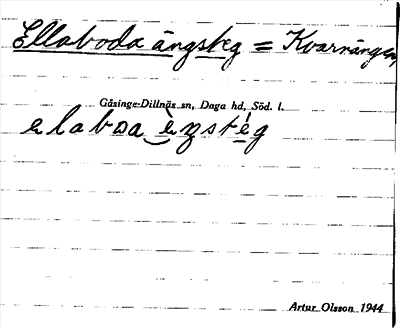 Ellaboda ängsteg = Kvarnängen
Gåsinge-Dillnäs sn, Daga hd, Söd. l.
elabωa èŋstég
Artur Olsson 1944